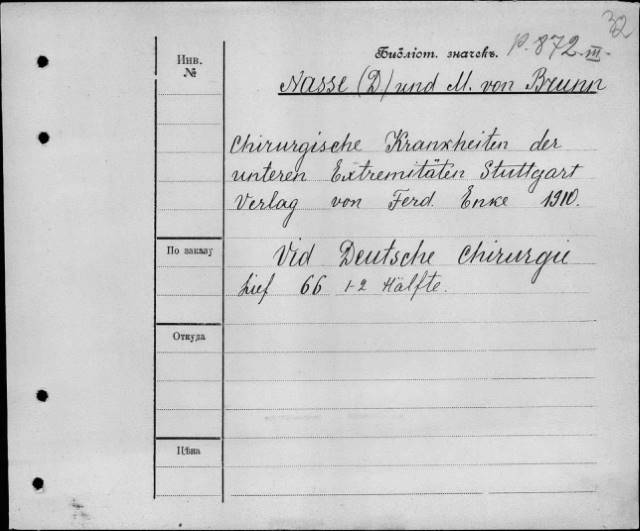 32
Инв.
№
Библіот. значекъ. P. 872. III.
Nasse (D) und M. von Brunn
Chirurgische Krankheiten der
unteren Extremitäten Stuttgart
Verlag von Ferd. Enke 1910.
По заказу
Vid Deutsche Chirurgie
Lief 66 1-2 Hälfte.
Откуда
Цѣна